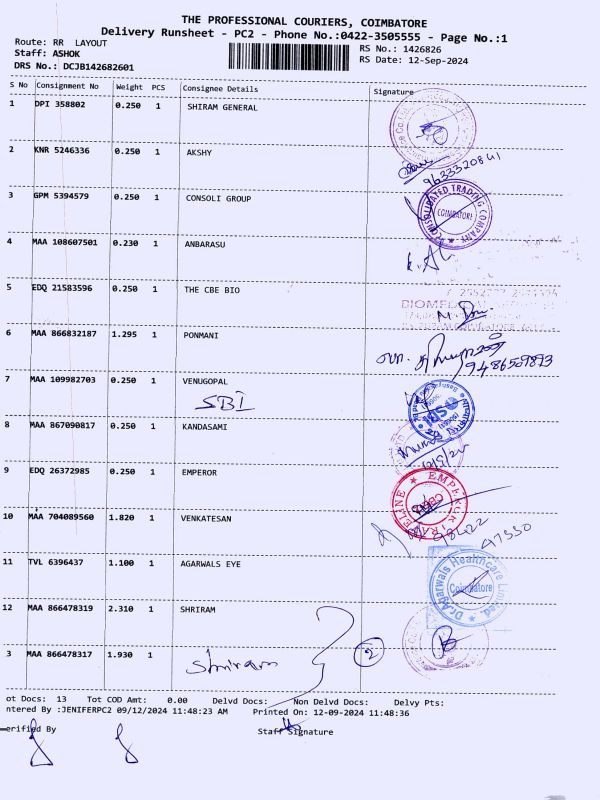 THE PROFESSIONAL COURIERS, COIMBATORE
Delivery Runsheet - PC2 - Phone No.:0422-3505555 - Page No.:1
Route: RR LAYOUT
RS No.: 1426826
Staff: ASHOK
RS Date: 12-Sep-2024
DRS No.: DCJB142682601
S No Consignment No Weight PCS Consignee Details Signature
1 DPI 358802 0.250 1 SHIRAM GENERAL
2 KNR 5246336 0.250 1 AKSHY
9633320841
3 GPM 5394579 0.250 1 CONSOLI GROUP
CONSOLIDATED TRADING COMPANY
COIMBATORE
4 MAA 108607501 0.230 1 ANBARASU
5 EDQ 21583596 0.250 1 THE CBE BIO
6 MAA 866832187 1.295 1 PONMANI
9486509893
7 MAA 109982703 0.250 1 VENUGOPAL
SBI
SBI
8 MAA 867090817 0.250 1 KANDASAMI
9 EDQ 26372985 0.250 1 EMPEROR
10 MAA 704089560 1.820 1 VENKATESAN
98422
47550
11 TVL 6396437 1.100 1 AGARWALS EYE
Dr.Agarwals Healthcare Limited.
Coimbatore
12 MAA 866478319 2.310 1 SHRIRAM
3 MAA 866478317 1.930 1
Shriram
2
ot Docs: 13 Tot COD Amt: 0.00 Delvd Docs: Non Delvd Docs: Delvy Pts:
ntered By :JENIFERPC2 09/12/2024 11:48:23 AM Printed On: 12-09-2024 11:48:36
erified By
Staff Signature